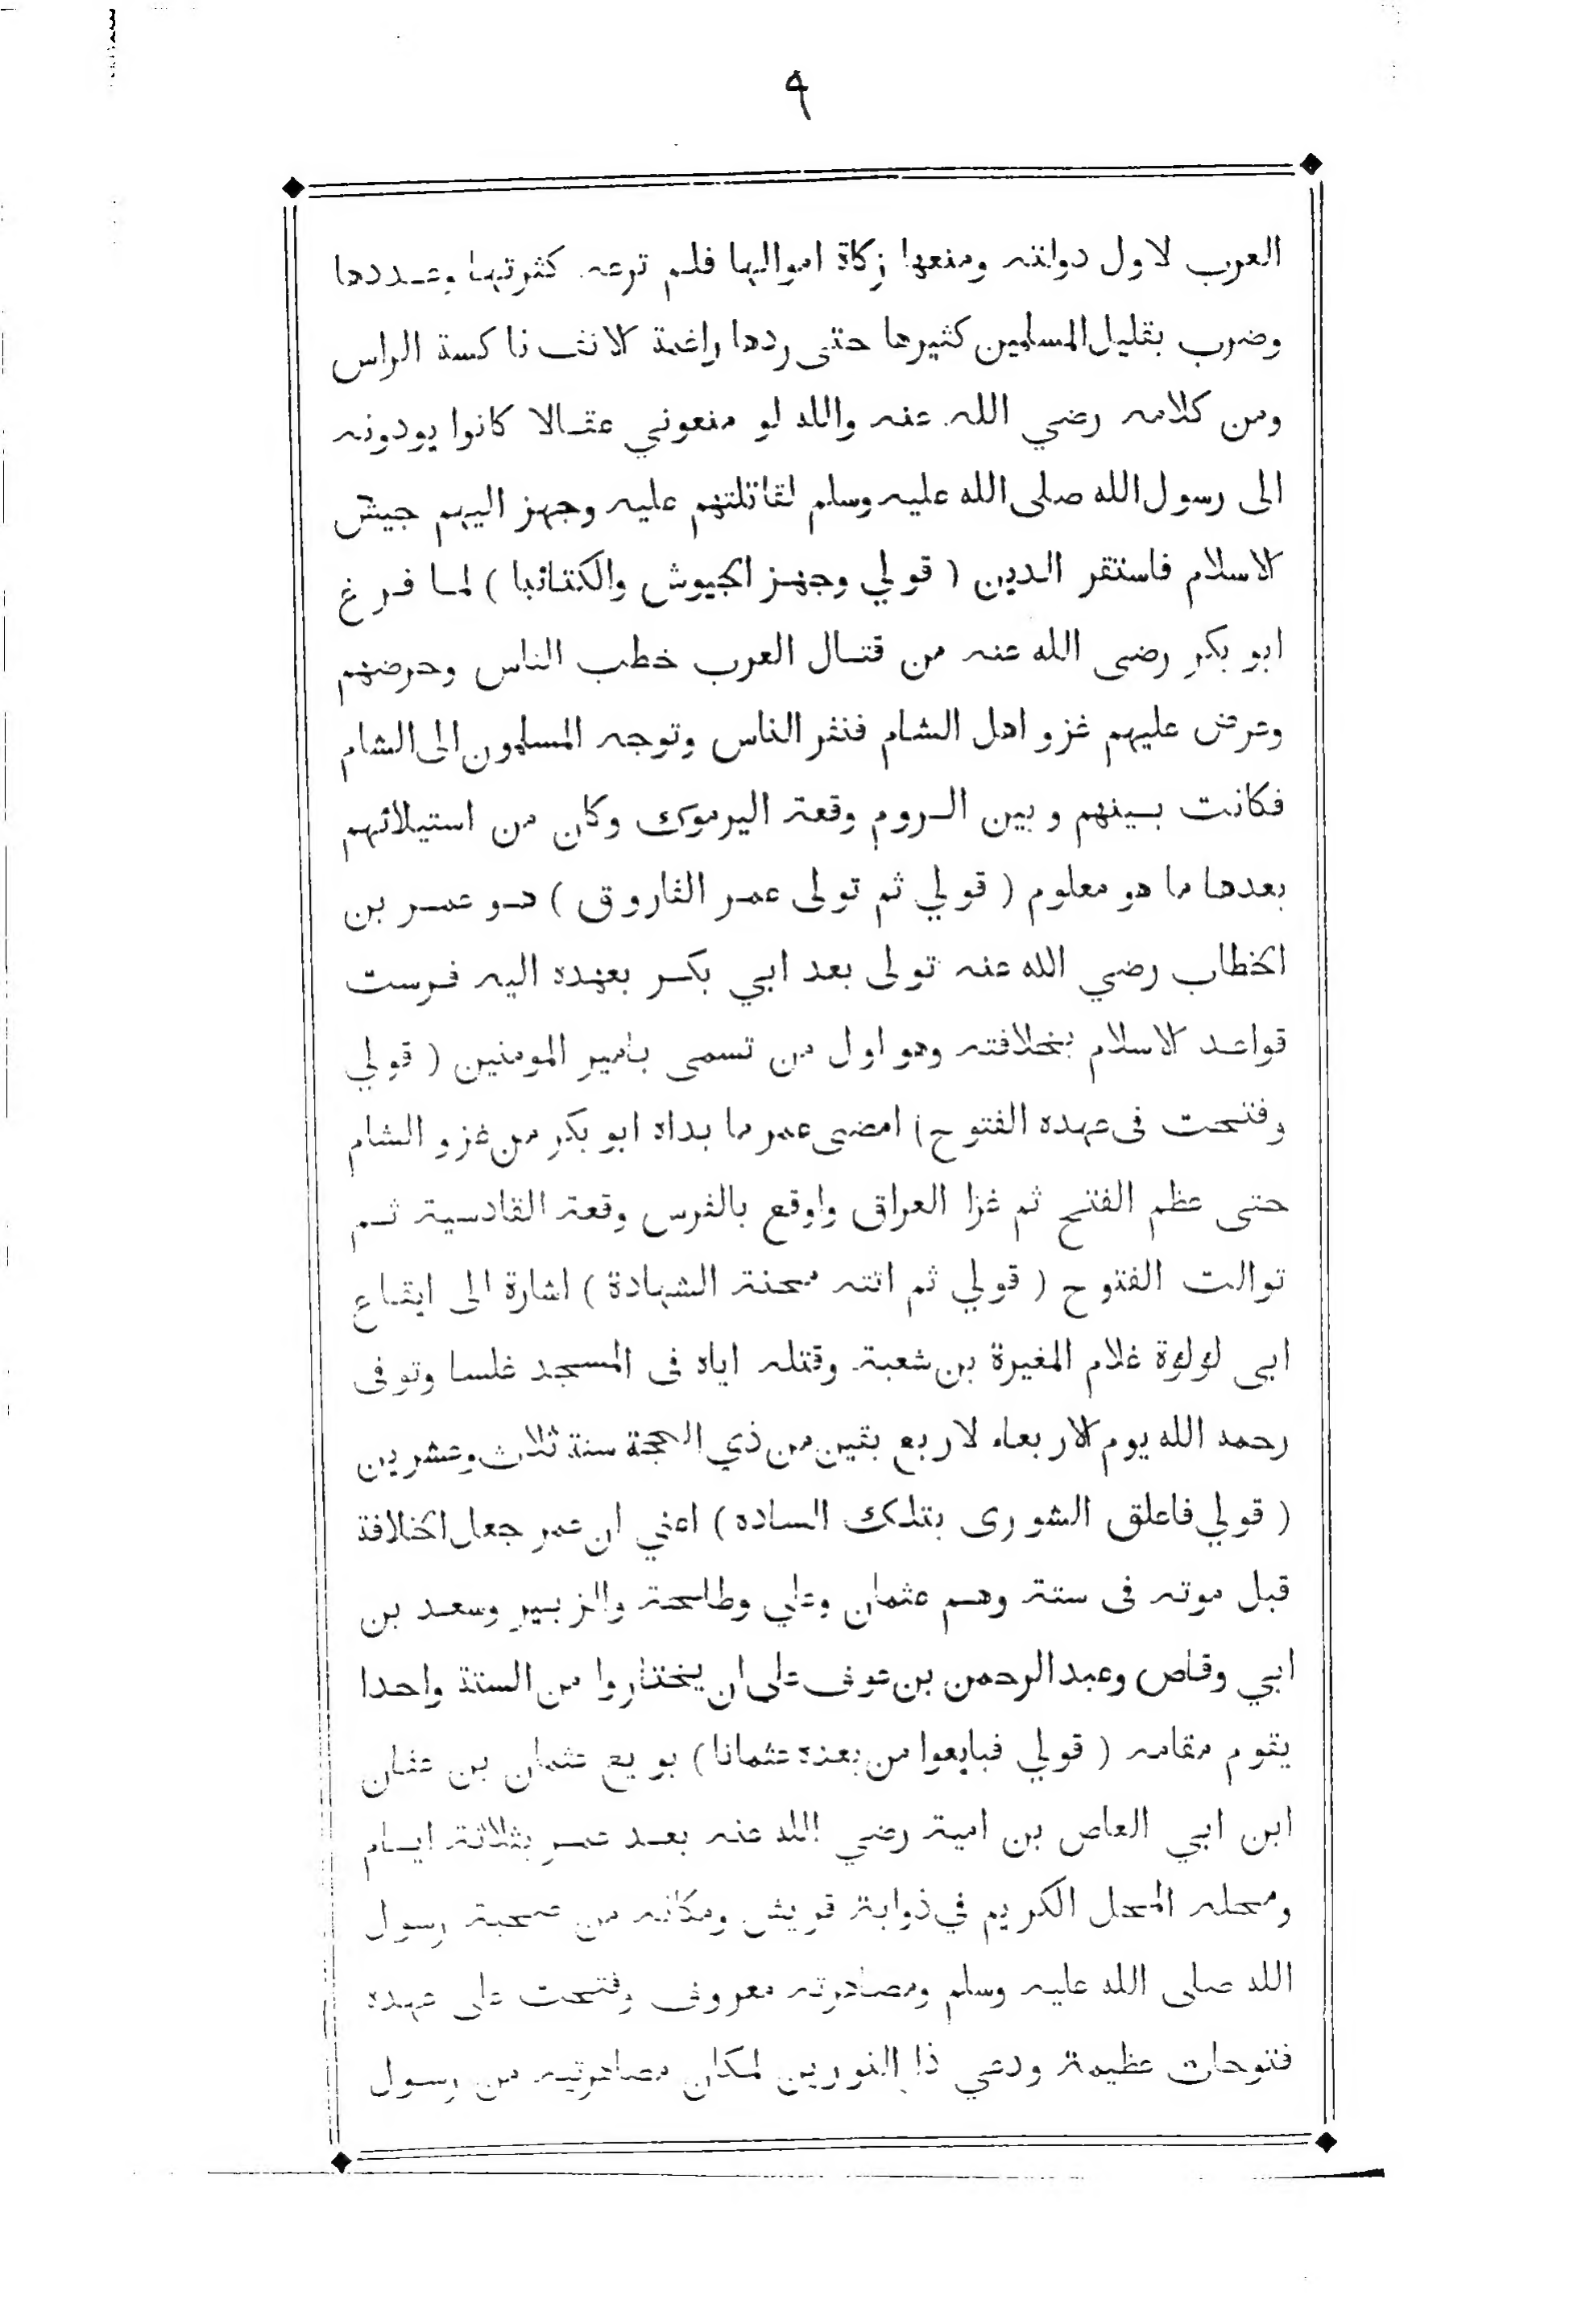 ٩
العرب لاول دولته ومنعها زكاة اموالها فلم ترعه كثرتها وعددها
وضرب بقليل المسلمين كثيرها حتى ردها راغمة الانف ناكسة الراس
ومن كلامه رضي الله عنه والله لو منعوني عقالا كانوا يودونه
الى رسول الله صلى الله عليه وسلم لقاتلتهم عليه وجهز اليهم جيش
الاسلام فاستقر الدين ( قولي وجهز الجيوش والكتائبا ) لما فرغ
ابو بكر رضى الله عنه من قتال العرب خطب الناس وحرضهم
وعرض عليهم غزو اهل الشام فنفر الناس وتوجه المسلمون الى الشام
فكانت بينهم وبين الروم وقعة اليرموك وكان من استيلائهم
بعدها ما هو معلوم ( قولي ثم تولى عمر الفاروق ) هو عمر بن
الخطاب رضي الله عنه تولى بعد ابي بكر بعهده اليه فرست
قواعد الاسلام بخلافته وهو اول من تسمى بامير المومنين ( قولي
وفتحت فى عهده الفتوح ) امضى عمر ما بداه ابو بكر من غزو الشام
حتى عظم الفتح ثم غزا العراق واوقع بالفرس وقعة القادسية ثم
توالت الفتوح ( قولي ثم اتته محنة الشهادة ) اشارة الى ايقاع
ابى لولوة غلام المغيرة بن شعبة وقتله اياه فى المسجد غلسا وتوفى
رحمه الله يوم الاربعاء لاربع بقين من ذي الحجة سنة ثلاث وعشرين
( قولي فاعلق الشورى بتلك الساده ) اعني ان عمر جعل الخلافة
قبل موته فى ستة وهم عثمان وعلي وطلحة والزبير وسعد بن
ابي وقاص وعبد الرحمن بن عوف على ان يختاروا من الستة واحدا
يقوم مقامه ( قولي فبايعوا من بعده عثمانا ) بويع عثمان بن عفان
ابن ابي العاص بن امية رضي الله عنه بعد عمر بثلاثة ايام
ومحله المحل الكريم في ذوابة قريش ومكانه من صحبة رسول
الله صلى الله عليه وسلم ومصاهرته معروف وفتحت على عهده
فتوحات عظيمة ودعي ذا النورين لمكان مصاهرتيه من رسول